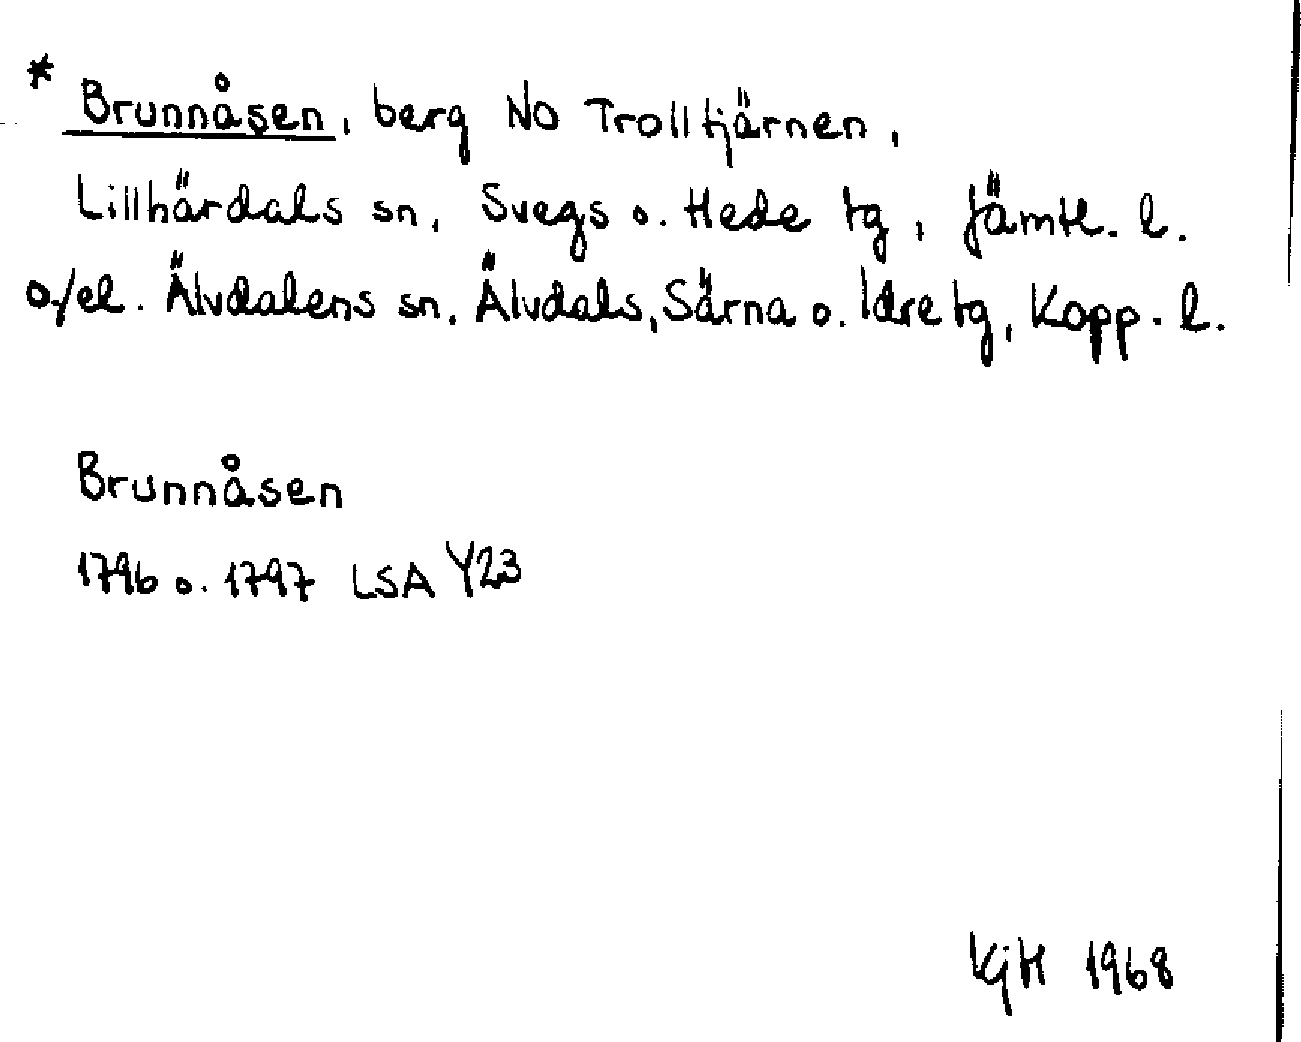 * Brunnåsen, berg NO Trolltjärnen,
Lillhärdals sn, Svegs o. Hede tg, Jämtl. l.
o./el. Älvdalens sn, Älvdals, Särna o. Idre tg, Kopp. l.
Brunnåsen
1796 o. 1797 LSA Y23
KjH 1968